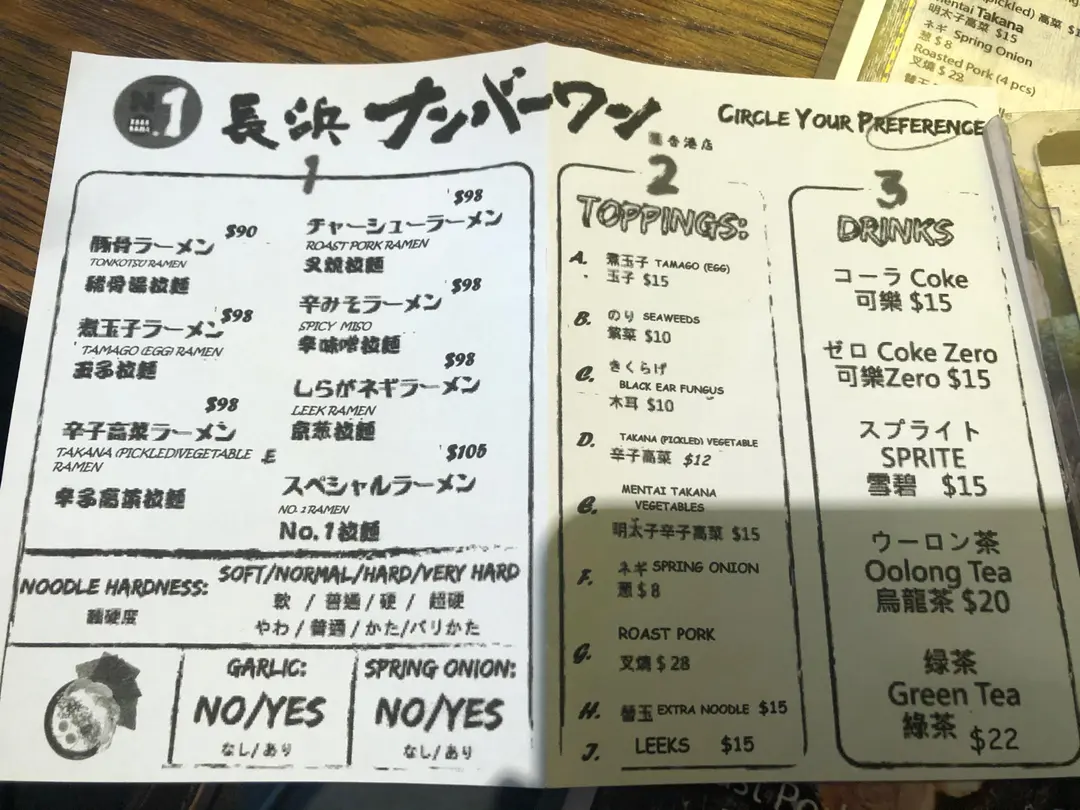 No.1
長浜 ナンバーワン
香港店
CIRCLE YOUR PREFERENCE
1
$90
豚骨ラーメン
TONKOTSU RAMEN
豬骨湯拉麵
$98
煮玉子ラーメン
TAMAGO (EGG) RAMEN
玉子拉麵
$98
辛子高菜ラーメン
TAKANA (PICKLED)VEGETABLE
RAMEN
辛子高菜拉麵
$98
チャーシューラーメン
ROAST PORK RAMEN
叉燒拉麵
$98
辛みそラーメン
SPICY MISO
辛味噌拉麵
$98
しらがネギラーメン
LEEK RAMEN
京葱拉麵
$105
スペシャルラーメン
NO.1 RAMEN
No.1拉麵
NOODLE HARDNESS:
麵硬度
SOFT/NORMAL/HARD/VERY HARD
軟 / 普通 / 硬 / 超硬
やわ / 普通 / かた/バリかた
GARLIC:
NO/YES
なし/あり
SPRING ONION:
NO/YES
なし/あり
2
TOPPINGS:
A. 煮玉子 TAMAGO (EGG)
玉子 $15
B. のり SEAWEEDS
紫菜 $10
C. きくらげ
BLACK EAR FUNGUS
木耳 $10
D. TAKANA (PICKLED) VEGETABLE
辛子高菜 $12
E. MENTAI TAKANA
VEGETABLES
明太子辛子高菜 $15
F. ネギ SPRING ONION
葱 $8
G. ROAST PORK
叉燒 $28
H. 替玉 EXTRA NOODLE $15
J. LEEKS $15
3
DRINKS
コーラ Coke
可樂 $15
ゼロ Coke Zero
可樂Zero $15
スプライト
SPRITE
雪碧 $15
ウーロン茶
Oolong Tea
烏龍茶 $20
緑茶
Green Tea
綠茶 $22
高菜
Takana
明太子高菜 $15
ネギ Spring Onion
葱 $8
Roasted Pork (4 pcs)
叉燒 $28